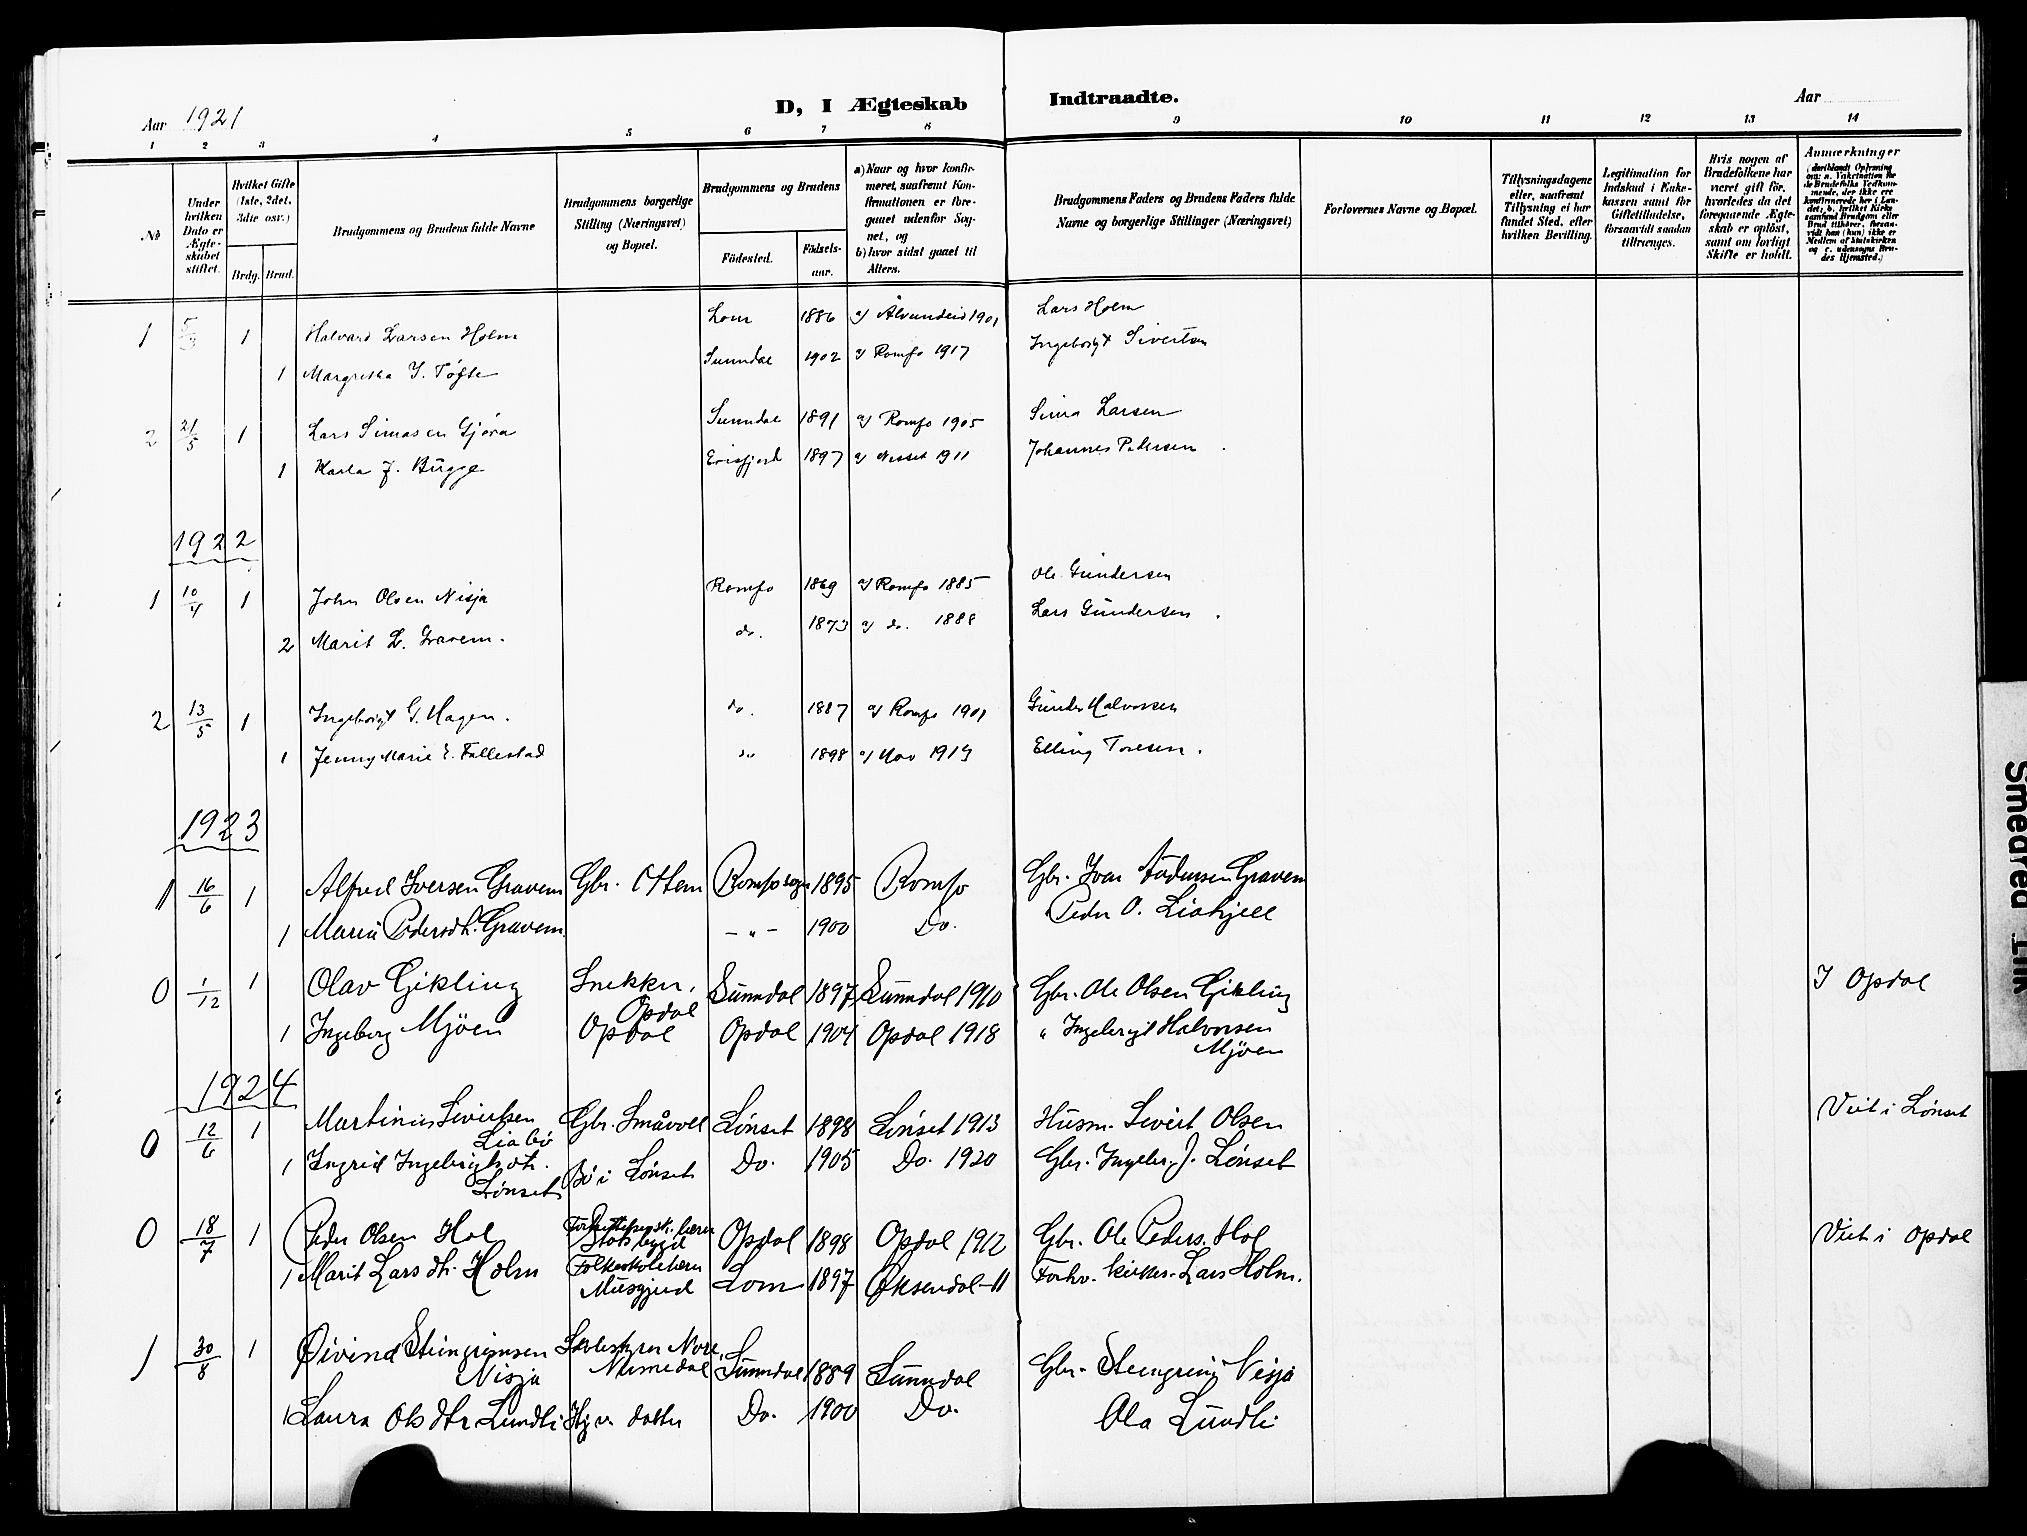 D, I Ægteskab Indtraadte.
Aar 1921
Aar
1 2 3 4 5 6 7 8 9 10 11 12 13 14
No
Under hvilken Dato er Ægteskabet stiftet.
Hvilket Gifte (1ste, 2det, 3die osv.)
Brdg. Brud.
Brudgommens og Brudens fulde Navne
Brudgommens borgerlige Stilling (Næringsvei) og Bopæl.
Brudgommens og Brudens
Fødested. Fødselsaar.
a) Naar og hvor konfirmeret, saafremt Konfirmationen er foregaaet udenfor Sognet, og
b) hvor sidst gaaet til Alters.
Brudgommens Faders og Brudens Faders fulde Navne og borgerlige Stillinger (Næringsvei)
Forlovernes Navne og Bopæl.
Tillysningsdagene eller, saafremt Tillysning ei har fundet Sted, efter hvilken Bevilling.
Legitimation for Indskud i Enkekassen samt for Giftetilladelse, forsaavidt saadan tiltrænges.
Hvis nogen af Brudefolkene har været gift før, hvorledes da det foregaaende Ægteskab er opløst, samt om lovligt Skifte er holdt.
Anmærkninger
1 5/3 1 Halvard Larsen Holm Lom 1886 a/ Ålvundeid 1901 Lars Holm
1 Margretha I. Tøfte Sunndal 1902 a/ Romfo 1917 Ingebrigt Sivertsen
2 21/5 1 Lars Simasen Gjøra Sunndal 1891 a/ Romfo 1905 Sima Larsen
1 Karla J. Bugge Erisfjord 1897 a/ Nesset 1911 Johannes Pedersen
1922
1 10/4 1 John Olsen Nisja Romfo 1869 a/ Romfo 1885 Ole Gundersen
2 Marit L. Gravem. do. 1873 a/ do. 1888 Lars Gundersen.
2 13/5 1 Ingebrigt G. Hagen. do. 1887 a/ Romfo 1901 Gunder Halvorsen
1 Jenny Marie E. Fallestad do 1898 a/ 1913 Elling Toresen.
1923
1 16/6 1 Alfred Iversen Gravem Gbr. Ottem Romfo sogn 1895 Romfo Gbr. Ivar Andersen Gravem
1 Marie Pedersdtr. Gravem. - " - 1900 Do. Peder O. Liahjell
0 1/12 1 Olav Gikling Snekker, Opdal Sunndal 1897 Sunndal 1910 Gbr. Ole Olsen Gikling I Opdal
1 Ingeborg Mjøen Opdal Opdal 1904 Opdal 1918 " Ingebrigt Halvorsen Mjøen
1924
0 12/6 1 Martinus Sivertsen Liabø Gbr. Småvoll Lønset 1898 Lønset 1913 Husm. Sivert Olsen Viet i Lønset
1 Ingrid Ingebrigtsdtr. Lønset Bø i Lønset Do. 1905 Do. 1920 Gbr. Ingebr. J. Lønset
0 18/7 1 Peder Olsen Hol Stadsbygd Opdal 1898 Opdal 1912 Gbr. Ole Peders. Hol Viet i Opdal
1 Marit Larsdtr. Holm Folkeskolelærer Musgjerd Lom 1897 Øksendal - 11 Forhv. kirkes. Lars Holm.
1 30/8 1 Øivind Steingrimsen Nisja Skolestyrer Nore, Numedal Sunndal 1889 Sunndal Gbr. Steingrim Nisja
1 Laura Olsdtr. Lundli Hjv. datter Do. 1900 Do. Ola Lundli
Smeared Ink